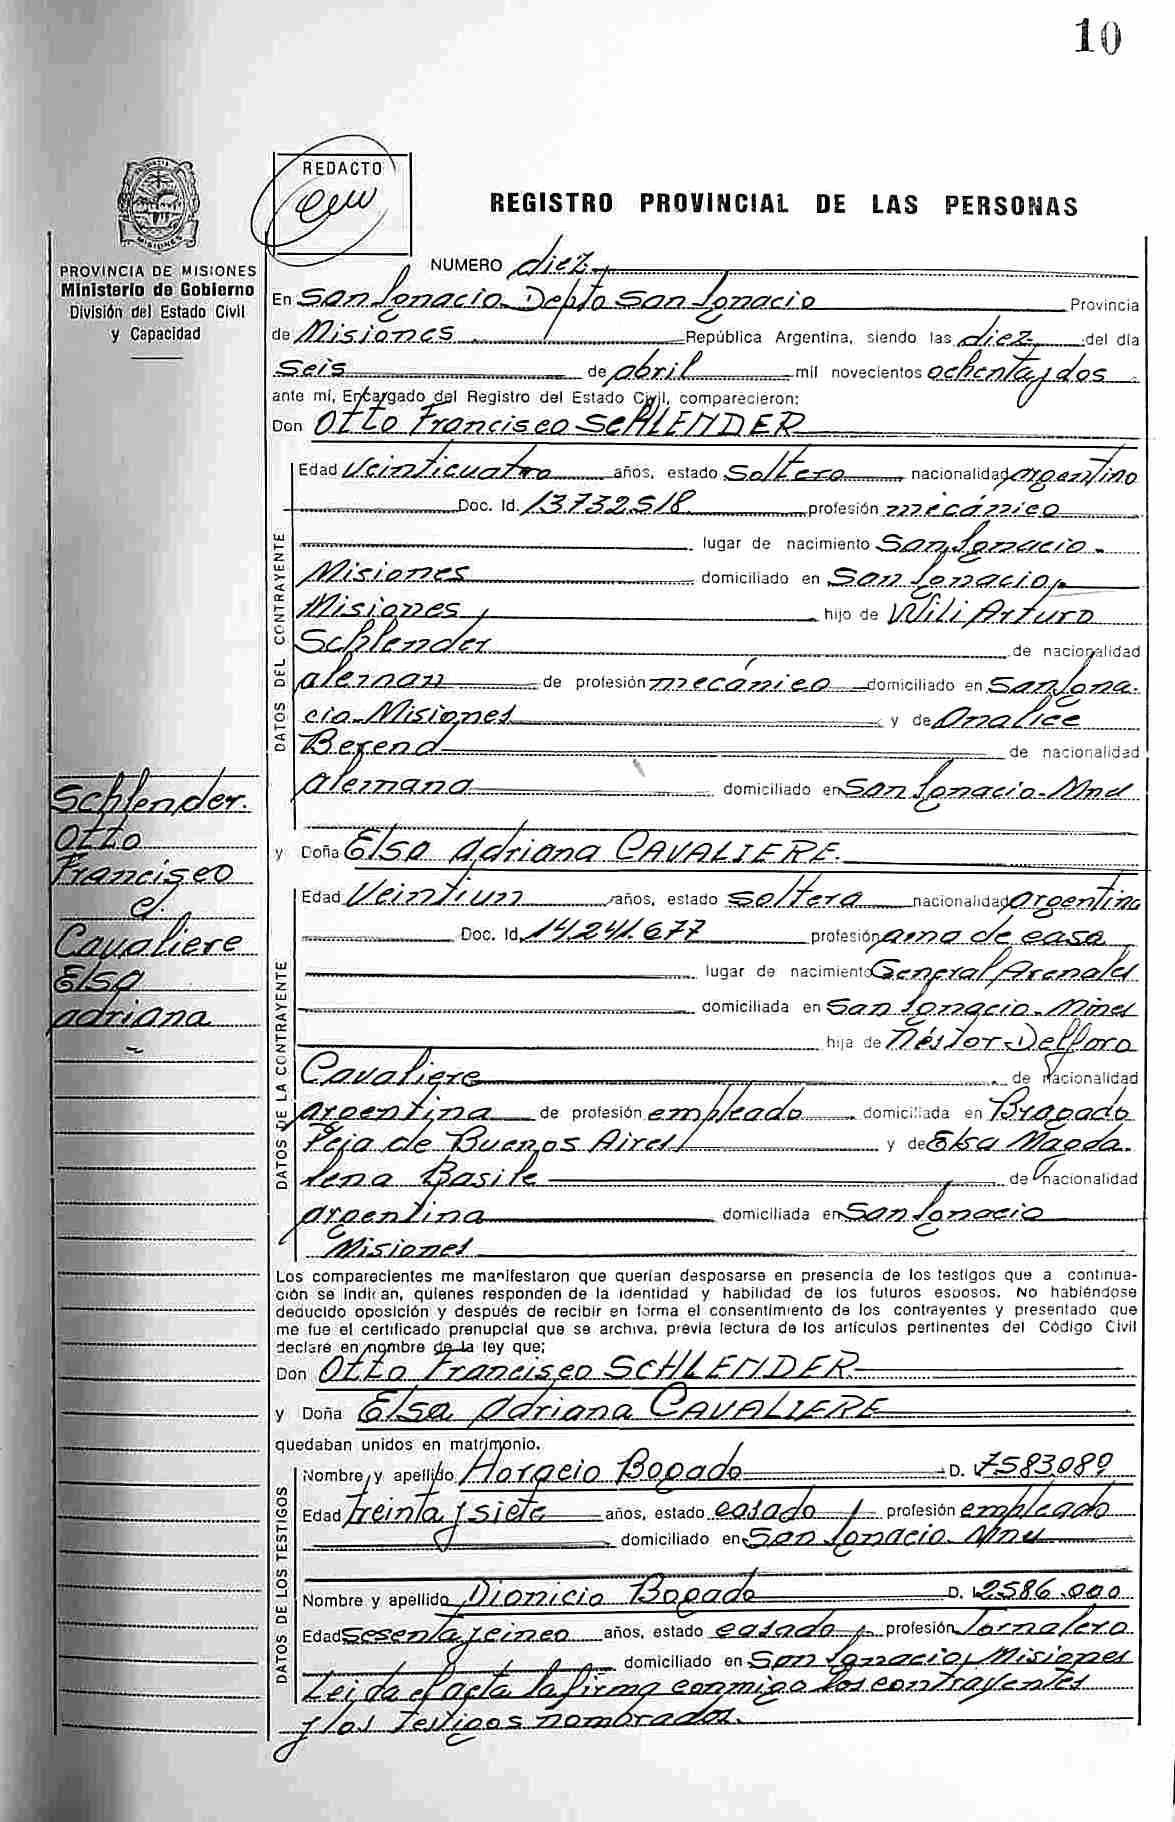 10
REDACTO
REGISTRO PROVINCIAL DE LAS PERSONAS
PROVINCIA DE MISIONES
Ministerio de Gobierno
División del Estado Civil
y Capacidad
NUMERO diez
En San Ignacio Depto San Ignacio Provincia
de Misiones República Argentina, siendo las diez del día
Seis de abril mil novecientos ochenta y dos
ante mí, Encargado del Registro del Estado Civil, comparecieron:
Don Otto Francisco SCHLENDER
DATOS DEL CONTRAYENTE
Edad Veinticuatro años, estado Soltero nacionalidad argentino
Doc. Id. 13732518 profesión mecánico
lugar de nacimiento San Ignacio -
Misiones domiciliado en San Ignacio,
Misiones hijo de Wili Arturo
Schlender de nacionalidad
aleman de profesión mecánico domiciliado en San Igna-
cio-Misiones y de Analice
Berend de nacionalidad
alemana domiciliado en San Ignacio-Mnes
Schlender.
Otto
Francisco
c/.
Cavaliere
Elsa
adriana
y Doña Elsa Adriana CAVALIERE.
DATOS DE LA CONTRAYENTE
Edad Veintiun años, estado soltera nacionalidad argentina
Doc. Id. 14.241.677 profesión ama de casa
lugar de nacimiento General Arenales
domiciliada en San Ignacio-Mines
hija de Néstor Delforo
Cavaliere de nacionalidad
argentina de profesión empleado domiciliada en Bragado
Pcja de Buenos Aires y de Elsa Magda-
lena Basile de nacionalidad
argentina domiciliada en San Ignacio
Misiones
Los comparecientes me manifestaron que querían desposarse en presencia de los testigos que a continua-
ción se indican, quienes responden de la identidad y habilidad de los futuros esposos. No habiéndose
deducido oposición y después de recibir en forma el consentimiento de los contrayentes y presentado que
me fue el certificado prenupcial que se archiva, previa lectura de los artículos pertinentes del Código Civil
declaré en nombre de la ley que;
Don Otto Francisco SCHLENDER
y Doña Elsa Adriana CAVALIERE
quedaban unidos en matrimonio.
DATOS DE LOS TESTIGOS
Nombre y apellido Horacio Bogado D. I. 7583089
Edad treinta y siete años, estado casado profesión empleado
domiciliado en San Ignacio-Mnes
Nombre y apellido Dionicio Bogado D. I. 2586.000
Edad Sesenta y cinco años, estado casado profesión Jornalero
domiciliado en San Ignacio, Misiones
Leída el acta la firma conmigo los contrayentes
y los testigos nombrados.